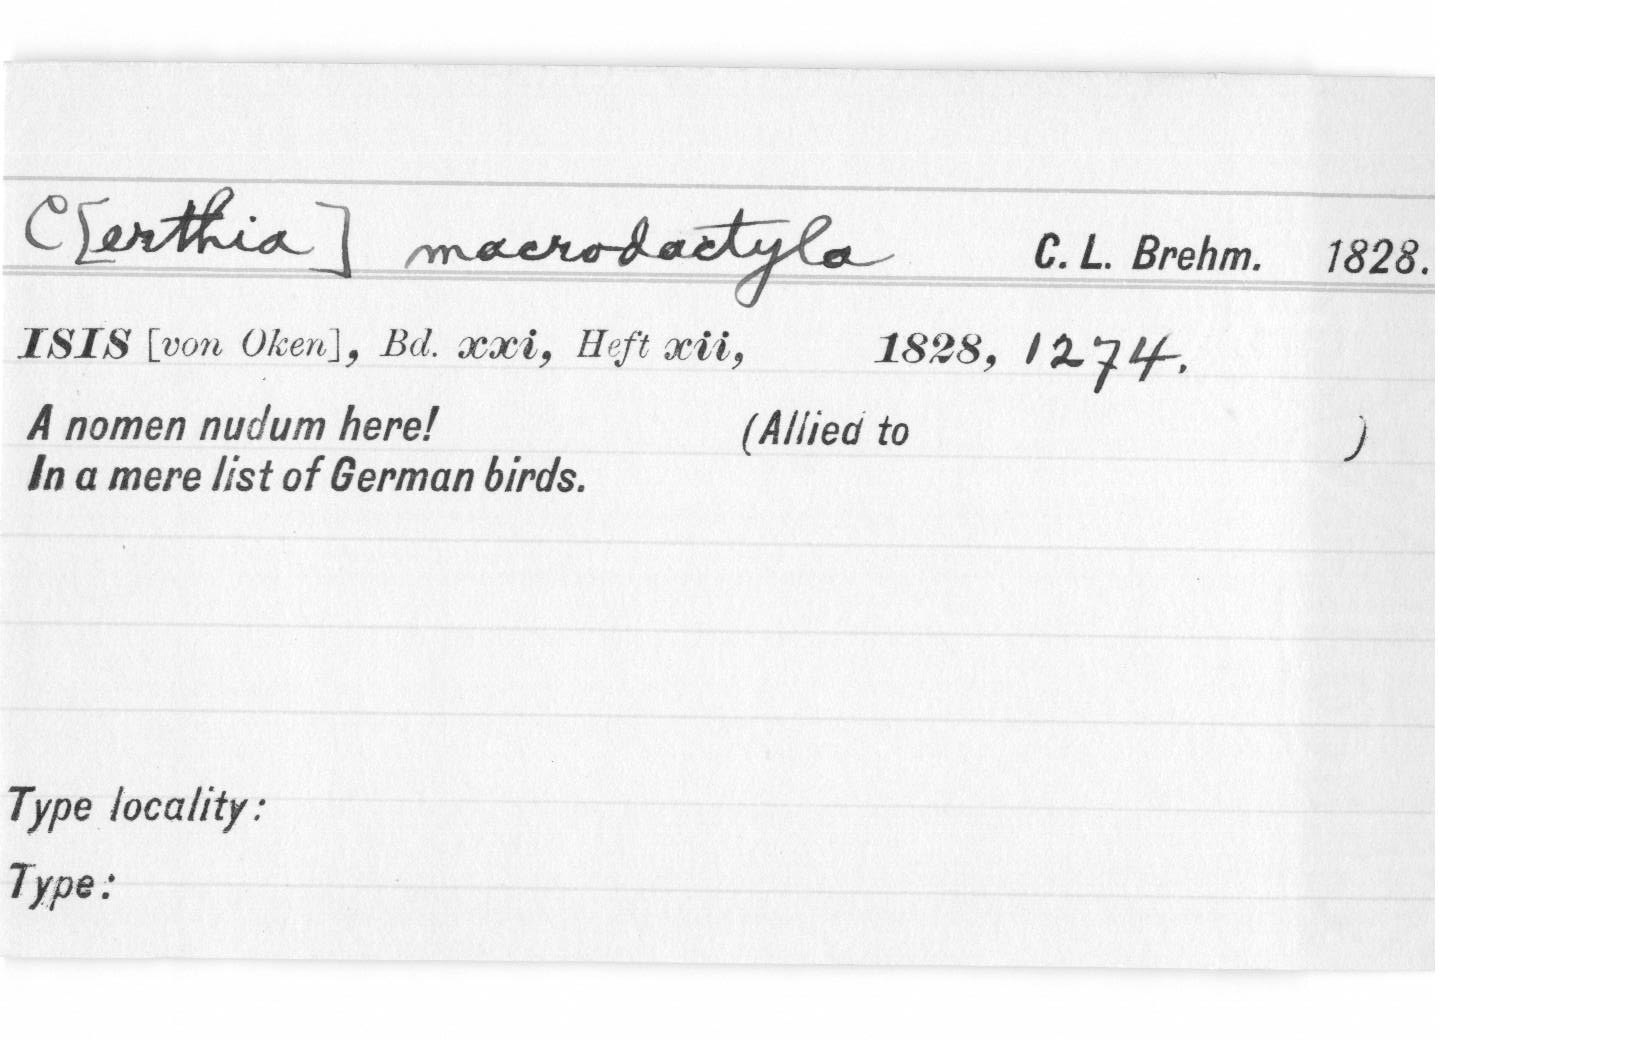 C[erthia] macrodactyla C. L. Brehm. 1828.
ISIS [von Oken], Bd. xxi, Heft xii, 1828, 1274.
A nomen nudum here! (Allied to )
In a mere list of German birds.
Type locality:
Type: